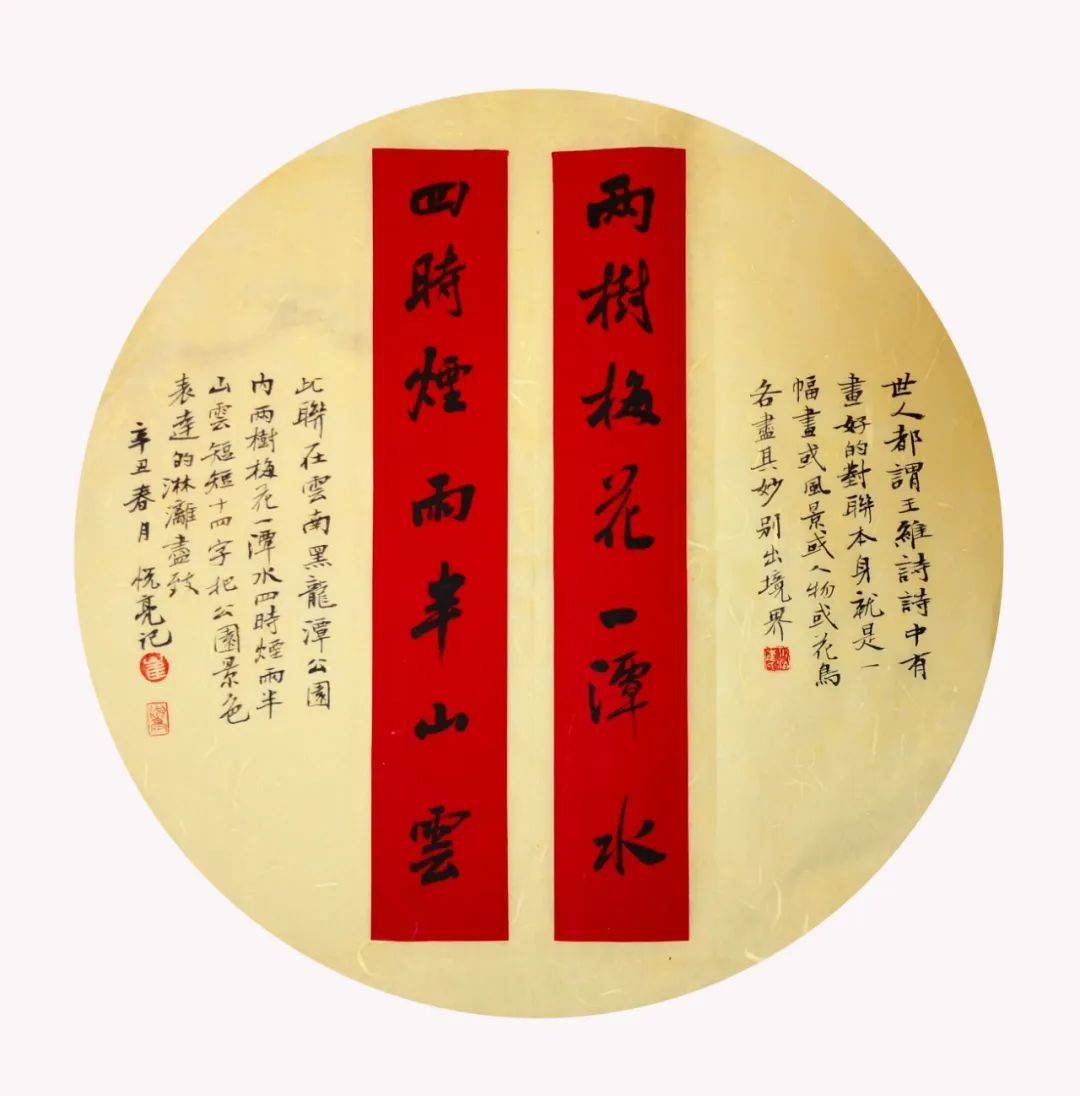 世人都謂王維詩詩中有
畫好的對聯本身就是一
幅畫或風景或人物或花鳥
各盡其妙別出境界
兩樹梅花一潭水
四時煙雨半山雲
此聯在雲南黑龍潭公園
內兩樹梅花一潭水四時煙雨半
山雲短短十四字把公園景色
表達的淋灕盡致
辛丑春月悅亮記